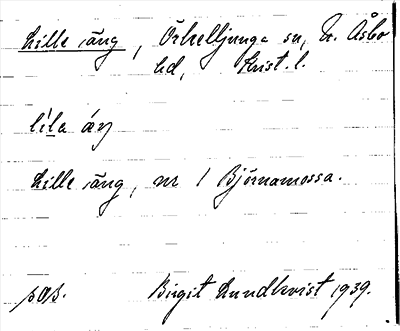 Lille äng, Örkelljunga sn, N. Åsbo
hd, Krist. l.
líla æŋ
Lille äng, nr 1 Björnamossa.
Birgit Lundkvist 1939.